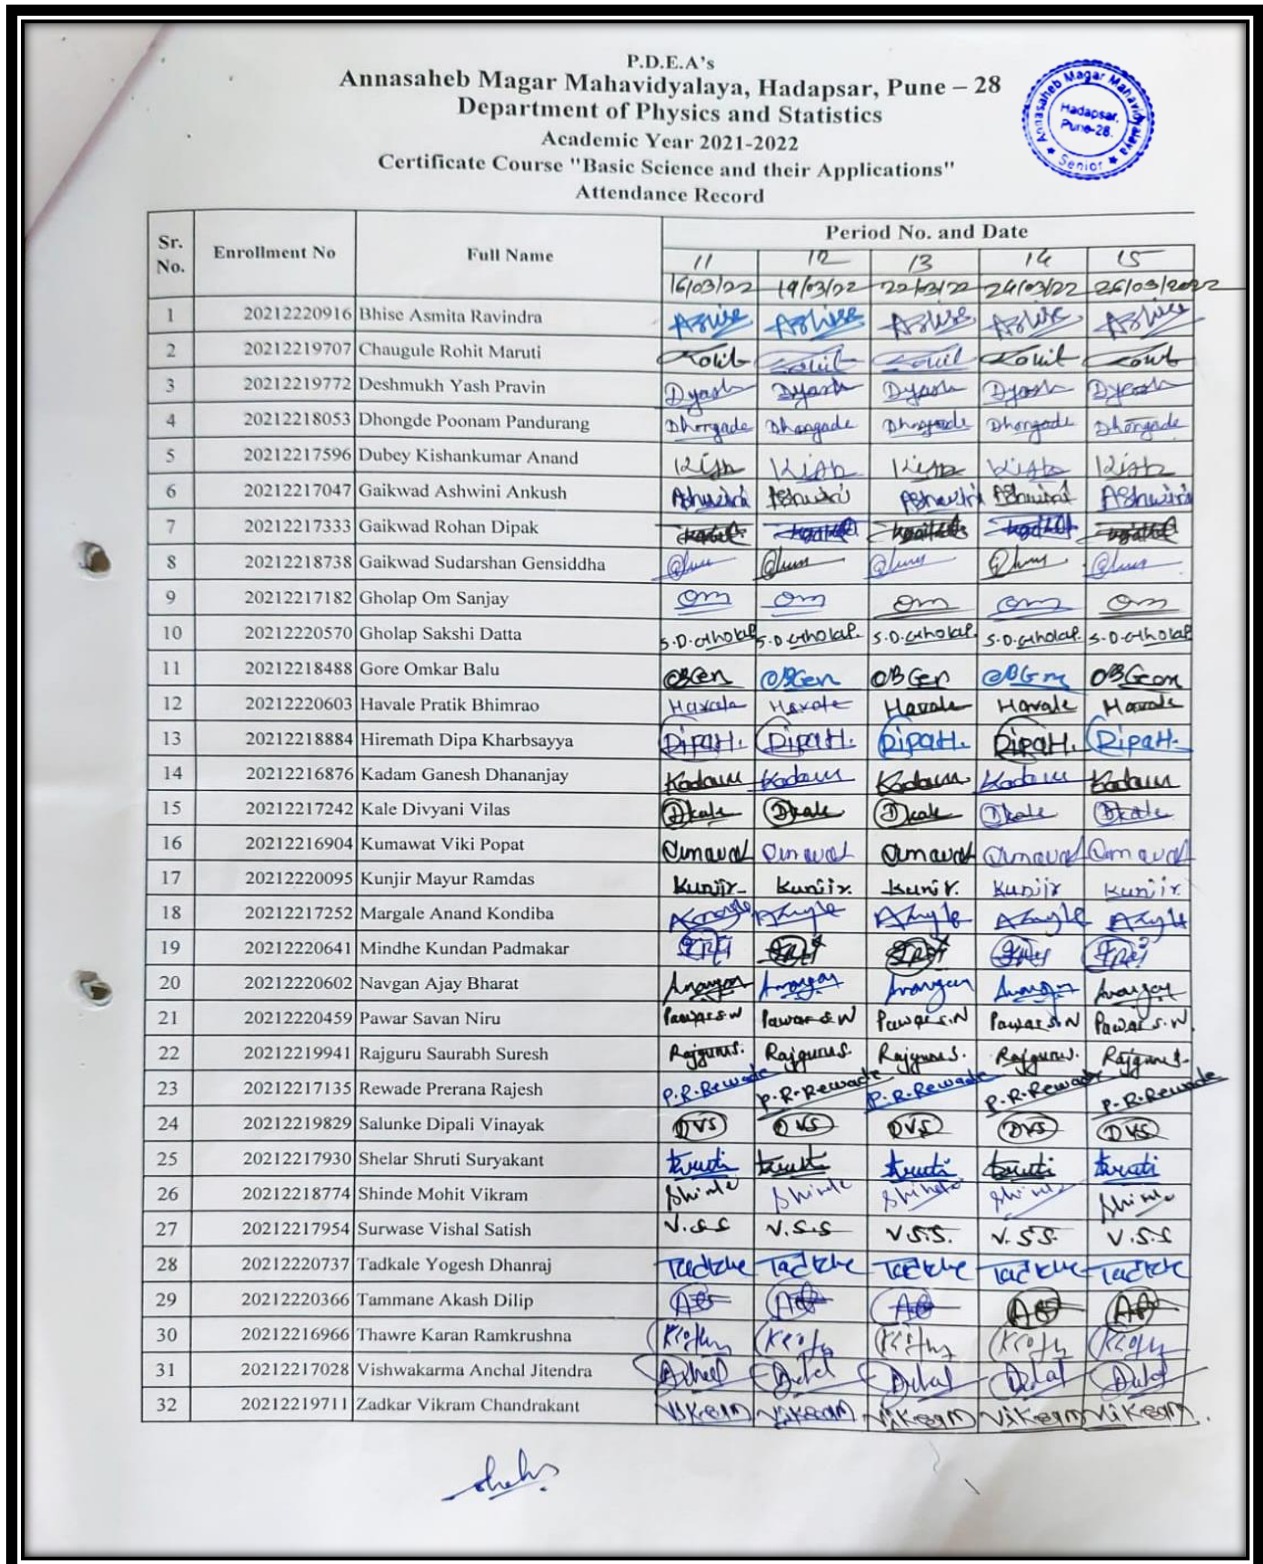 P.D.E.A's
Annasaheb Magar Mahavidyalaya, Hadapsar, Pune – 28
Department of Physics and Statistics
Academic Year 2021-2022
Certificate Course "Basic Science and their Applications"
Attendance Record
Annasaheb Magar Mahavidyalaya
Hadapsar,
Pune-28.
★ Senior ★
Sr. No. Enrollment No Full Name Period No. and Date
11 12 13 14 15
16/03/22 19/03/22 22/03/22 24/03/22 26/03/2022
1 20212220916 Bhise Asmita Ravindra
2 20212219707 Chaugule Rohit Maruti
3 20212219772 Deshmukh Yash Pravin Dyash Dyash Dyash Dyash Dyash
4 20212218053 Dhongde Poonam Pandurang Dhongade Dhongade Dhongade Dhongade Dhongade
5 20212217596 Dubey Kishankumar Anand
6 20212217047 Gaikwad Ashwini Ankush Ashwini Ashwini Ashwini Ashwini Ashwini
7 20212217333 Gaikwad Rohan Dipak
8 20212218738 Gaikwad Sudarshan Gensiddha
9 20212217182 Gholap Om Sanjay Om Om Om Om Om
10 20212220570 Gholap Sakshi Datta S.D.Gholap. S.D.Gholap. S.D.Gholap. S.D.Gholap. S.D.Gholap
11 20212218488 Gore Omkar Balu
12 20212220603 Havale Pratik Bhimrao Havale Havale Havale Havale Havale
13 20212218884 Hiremath Dipa Kharbsayya DipaH. DipaH. DipaH. DipaH. DipaH.
14 20212216876 Kadam Ganesh Dhananjay Kadam Kadam Kadam Kadam Kadam
15 20212217242 Kale Divyani Vilas Dkale Dkale Dkale Dkale Dkale
16 20212216904 Kumawat Viki Popat
17 20212220095 Kunjir Mayur Ramdas Kunjir Kunjir. Kunjir. Kunjir Kunjir.
18 20212217252 Margale Anand Kondiba
19 20212220641 Mindhe Kundan Padmakar
20 20212220602 Navgan Ajay Bharat
21 20212220459 Pawar Savan Niru Pawar S.N Pawar S.N Pawar S.N Pawar S.N Pawar S.N
22 20212219941 Rajguru Saurabh Suresh Rajguru S. Rajguru S. Rajguru S. Rajguru S. Rajguru S.
23 20212217135 Rewade Prerana Rajesh P.R.Rewade P.R.Rewade P.R.Rewade P.R.Rewade P.R.Rewade
24 20212219829 Salunke Dipali Vinayak DVS DVS DVS DVS DVS
25 20212217930 Shelar Shruti Suryakant
26 20212218774 Shinde Mohit Vikram Shinde Shinde Shinde Shinde Shinde
27 20212217954 Surwase Vishal Satish V.S.S V.S.S V.S.S. V.S.S. V.S.S
28 20212220737 Tadkale Yogesh Dhanraj
29 20212220366 Tammane Akash Dilip
30 20212216966 Thawre Karan Ramkrushna
31 20212217028 Vishwakarma Anchal Jitendra
32 20212219711 Zadkar Vikram Chandrakant Vikram Vikram Vikram Vikram Vikram.